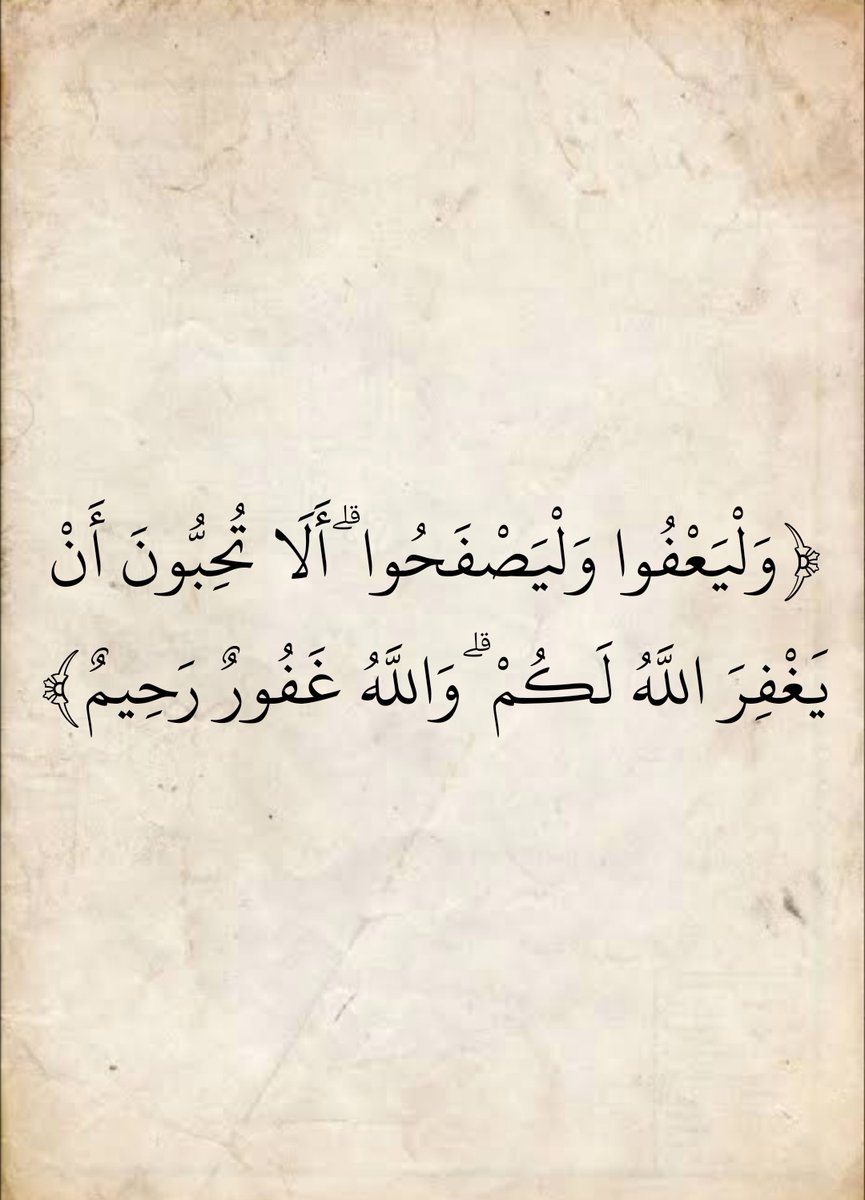 ﴿وَلْيَعْفُوا وَلْيَصْفَحُوا ۗ أَلَا تُحِبُّونَ أَنْ
يَغْفِرَ اللَّهُ لَكُمْ ۗ وَاللَّهُ غَفُورٌ رَحِيمٌ﴾